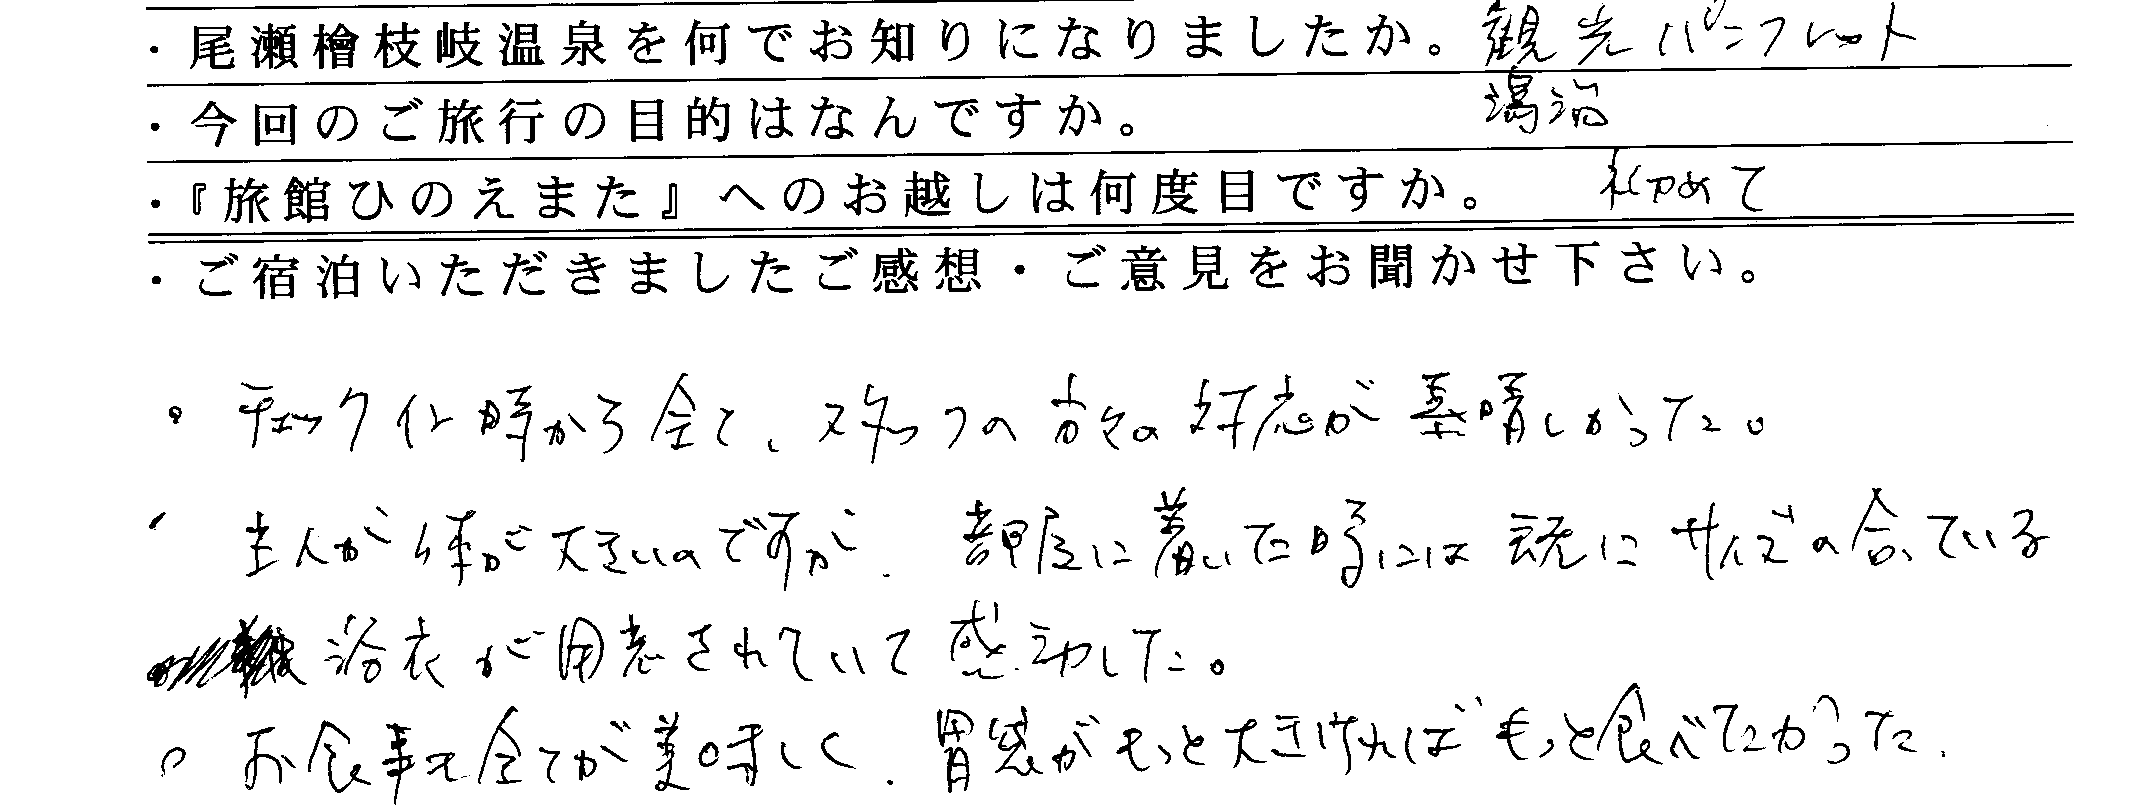 ・尾瀬檜枝岐温泉を何でお知りになりましたか。観光パンフレット
・今回のご旅行の目的はなんですか。湯治
・『旅館ひのえまた』へのお越しは何度目ですか。初めて
・ご宿泊いただきましたご感想・ご意見をお聞かせ下さい。
・チェックイン時から全て、スタッフの方々の対応が素晴しかった。
・主人が体が大きいのですが、部屋に着いた時には既にサイズの合っている
浴衣が用意されていて感動した。
・お食事も全てが美味しく、胃袋がもっと大きければもっと食べてたかった。